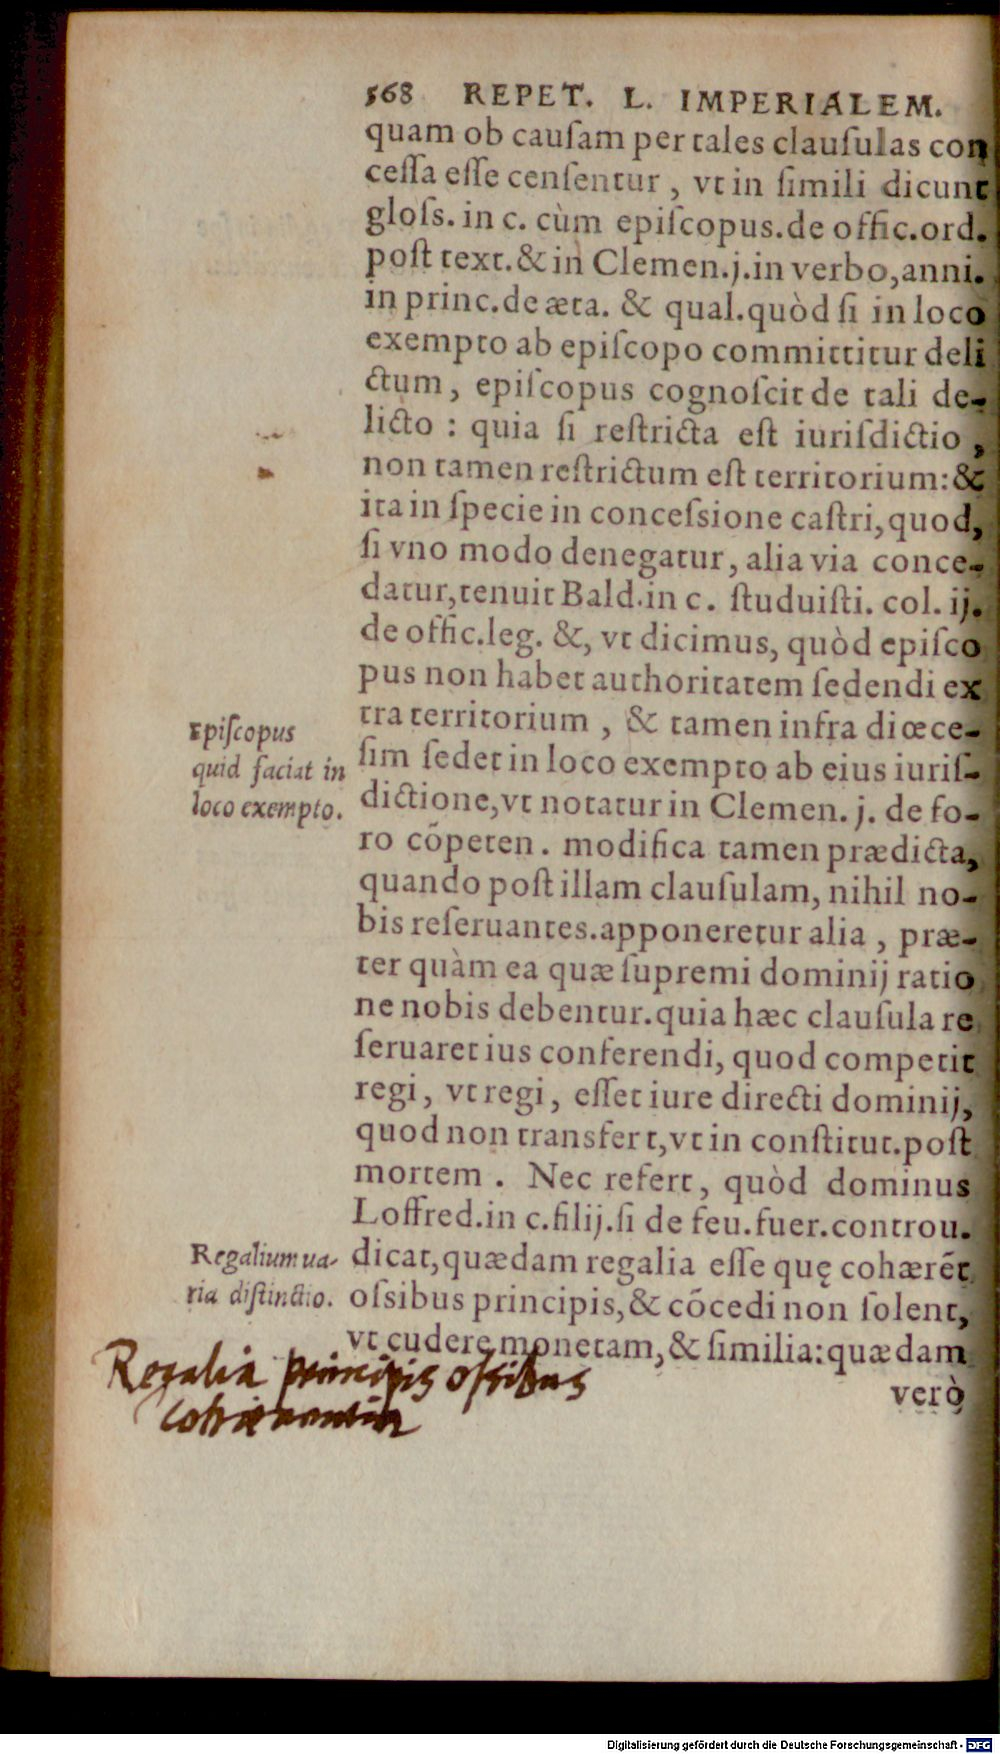 568 REPET. L. IMPERIALEM.
quam ob cauſam per tales clauſulas con
ceſſa eſſe cenſentur , vt in ſimili dicunt
gloſs. in c. cùm epiſcopus.de offic.ord.
poſt text.& in Clemen.j.in verbo,anni.
in princ.de æta. & qual.quòd ſi in loco
exempto ab epiſcopo committitur deli
ctum, epiſcopus cognoſcit de tali de-
licto : quia ſi reſtricta eſt iuriſdictio ,
non tamen reſtrictum eſt territorium:&
ita in ſpecie in conceſsione caſtri,quod,
ſi vno modo denegatur, alia via conce-
datur,tenuit Bald.in c. ſtuduiſti. col. ij.
de offic.leg. &, vt dicimus, quòd epiſco
pus non habet authoritatem ſedendi ex
tra territorium , & tamen infra diœce-
ſim ſedet in loco exempto ab eius iuriſ-
dictione,vt notatur in Clemen. j. de fo-
ro cõpeten . modifica tamen prædicta,
quando poſt illam clauſulam, nihil no-
bis reſeruantes.apponeretur alia , præ-
ter quàm ea quæ ſupremi dominij ratio
ne nobis debentur.quia hæc clauſula re
ſeruaret ius conferendi, quod competit
regi, vt regi, eſſet iure directi dominij,
quod non transfert,vt in conſtitut.poſt
mortem . Nec refert, quòd dominus
Loffred.in c.filij.ſi de feu.fuer.controu.
dicat,quædam regalia eſſe quę cohærẽt
oſsibus principis,& cõcedi non ſolent,
vt cudere monetam,& ſimilia:quædam
verò
Epiſcopus
quid faciat in
loco exempto.
Regalium ua-
ria diſtinctio.
Regalia principis oſſibus
Digitalisierung gefördert durch die Deutsche Forschungsgemeinschaft - DFG